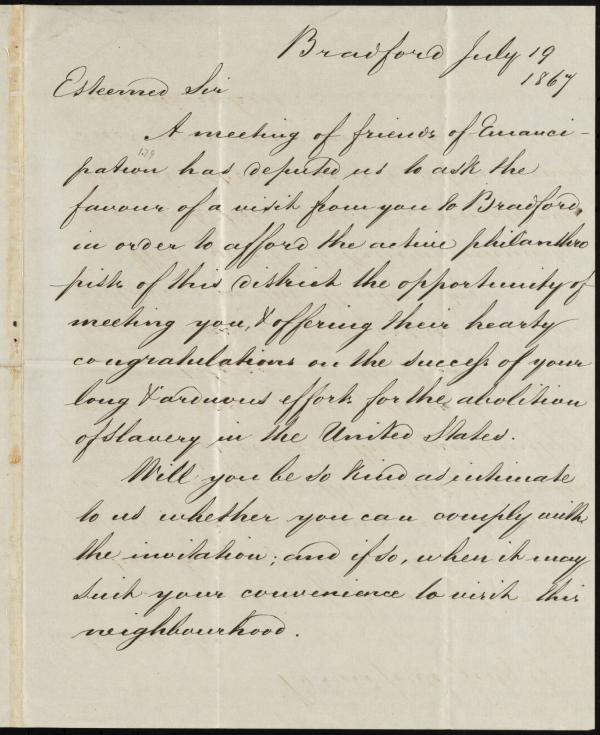 Bradford July 19
1867
Esteemed Sir
A meeting of friends of Emanci-
pation has deputed us to ask the
favour of a visit from you to Bradford,
in order to afford the active philanthro
pists of this district the opportunity of
meeting you, & offering their hearty
congratulations on the success of your
long & arduous efforts for the abolition
of slavery in the United States.
Will you be so kind as intimate
to us whether you can comply with
the invitation; and if so, when it may
suit your convenience to visit this
neighbourhood.